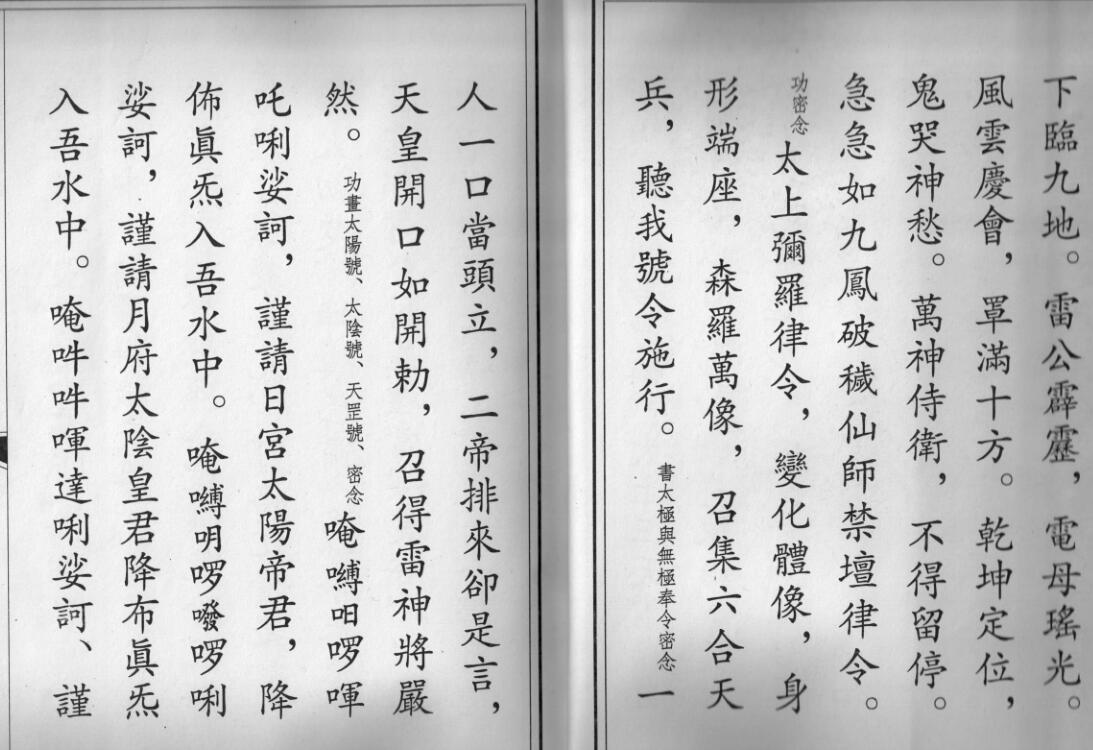 下臨九地。雷公霹靂，電母瑤光。
風雲慶會，罩滿十方。乾坤定位，
鬼哭神愁。萬神侍衛，不得留停。
急急如九鳳破穢仙師禁壇律令。
功密念太上彌羅律令，變化體像，身
形端座，森羅萬像，召集六合天
兵，聽我號令施行。書太極與無極奉令密念一
人一口當頭立，二帝排來卻是言，
天皇開口如開勅，召得雷神將嚴
然。功畫太陽號、太陰號、天罡號、密念唵嚩呬啰喗
吒唎娑訶，謹請日宮太陽帝君，降
佈眞炁入吾水中。唵嚩明啰㗶啰唎
娑訶，謹請月府太陰皇君降布眞炁
入吾水中。唵吽吽喗達唎娑訶、謹